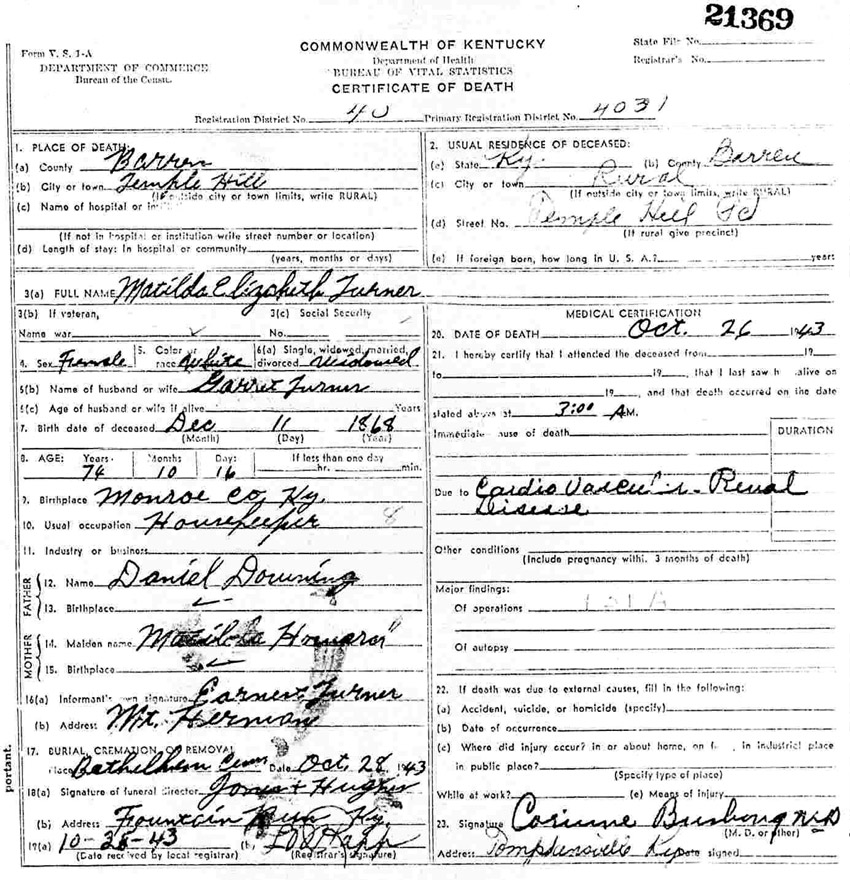 21369
Form V. S. 1-A
DEPARTMENT OF COMMERCE
Bureau of the Census
COMMONWEALTH OF KENTUCKY
Department of Health
BUREAU OF VITAL STATISTICS
CERTIFICATE OF DEATH
State File No.
Registrar's No.
Registration District No. 40 Primary Registration District No. 4031
1. PLACE OF DEATH:
(a) County Barren
(b) City or town Temple Hill
(If outside city or town limits, write RURAL)
(c) Name of hospital or
(If not in hospital or institution write street number or location)
(d) Length of stay: In hospital or community
(years, months or days)
2. USUAL RESIDENCE OF DECEASED:
(a) State Ky. (b) County Barren
(c) City or town Rural
(If outside city or town limits, write RURAL)
(d) Street No. Temple Hill
(If rural give precinct)
(e) If foreign born, how long in U. S. A.? years
3(a) FULL NAME Matilda Elizabeth Turner
3(b) If veteran, 3(c) Social Security
Name war No.
4. Sex Female 5. Color or race White 6(a) Single, widowed, married, divorced Widowed
6(b) Name of husband or wife Garret Turner
6(c) Age of husband or wife if alive Years
7. Birth date of deceased Dec 11 1868
(Month) (Day) (Year)
8. AGE: Years Months Days If less than one day
74 10 16 hr. min.
9. Birthplace Monroe Co, Ky.
10. Usual occupation Housekeeper 8
11. Industry or business
FATHER
12. Name Daniel Downing
13. Birthplace
MOTHER
14. Maiden name Matilda
15. Birthplace
16(a) Informant's own signature Earnest Turner
(b) Address Mt. Herman
17. BURIAL, CREMATION OR REMOVAL
Place Bethelhem Cem Date Oct. 28, 1943
18(a) Signature of funeral director Jones + Hughes
(b) Address Fountain Run Ky.
19(a) 10-28-43 (b)
(Date received by local registrar) (Registrar's signature)
MEDICAL CERTIFICATION
20. DATE OF DEATH Oct. 26 1943
21. I hereby certify that I attended the deceased from 19
to 19 , that I last saw h alive on
19 , and that death occurred on the date
stated above at 3:00 A.M.
Immediate cause of death DURATION
Due to Cardio Vascular-Renal
Disease
Other conditions
(Include pregnancy within 3 months of death)
Major findings:
Of operations
Of autopsy
22. If death was due to external causes, fill in the following:
(a) Accident, suicide, or homicide (specify)
(b) Date of occurrence
(c) Where did injury occur? in or about home, on f , in industrial place
in public place?
(Specify type of place)
While at work? (e) Means of injury
23. Signature Corinne Bushong M.D
(M. D. or other)
Address Tompkinsville Ky Date signed
portant.